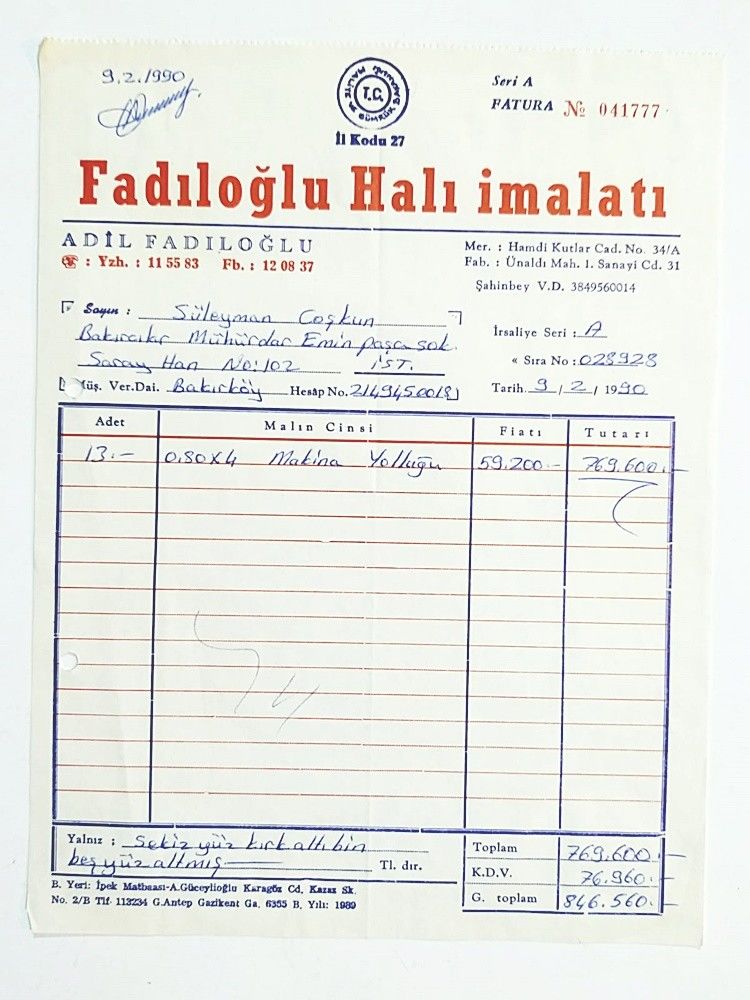 9.2.1990
T.C.
MALİYE VE GÜMRÜK BAKANLIĞI
İl Kodu 27
Seri A
FATURA № 041777
Fadıloğlu Halı imalatı
ADİL FADILOĞLU
☎ : Yzh. : 11 55 83 Fb. : 12 08 37
Mer. : Hamdi Kutlar Cad. No. 34/A
Fab. : Ünaldı Mah. 1. Sanayi Cd. 31
Şahinbey V.D. 3849560014
Sayın : Süleyman Coşkun
Bakırcılar Mühürdar Emin paşa sok.
Saray Han No: 102 İST.
Müş. Ver.Dai. Bakırköy Hesap No. 2149450019
İrsaliye Seri : A
« Sıra No : 028928
Tarih 9 / 2 / 1990
Adet Malın Cinsi Fiatı Tutarı
13.- 0.80x4 Makina Yolluğu 59.200.- 769.600.-
Yalnız : Sekiz yüz kırk altı bin
beş yüz altmış Tl. dır.
Toplam 769.600.-
K.D.V. 76.960.-
G. toplam 846.560.-
B. Yeri: İpek Matbaası-A.Güceylioğlu Karagöz Cd. Kazaz Sk.
No. 2/B Tlf. 113234 G.Antep Gazikent Ga. 6355 B. Yılı: 1989